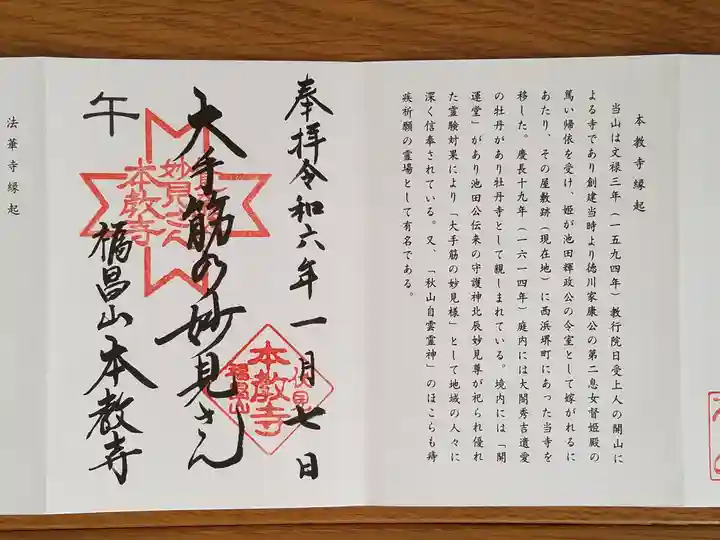 本教寺縁起
当山は文禄三年（一五九四年）教行院日受上人の開山に
よる寺であり創建当時より徳川家康公の第二息女督姫殿の
篤い帰依を受け、姫が池田輝政公の令室として嫁がれるに
あたり、その屋敷跡（現在地）に西浜堺町にあった当寺を
移した。慶長十九年（一六一四年）庭内には大閤秀吉遺愛
の牡丹があり牡丹寺として親しまれている。境内には「開
運堂」があり池田公伝来の守護神北辰妙見尊が祀られ優れ
た霊験対果により「大手筋の妙見様」として地域の人々に
深く信奉されている。又、「秋山自雲霊神」のほこらも痔
疾祈願の霊場として有名である。
奉拝令和六年一月七日
伏見
本教寺
福昌山
大手筋の妙見さん
妙見さん
本教寺
福昌山本教寺
午
法華寺縁起